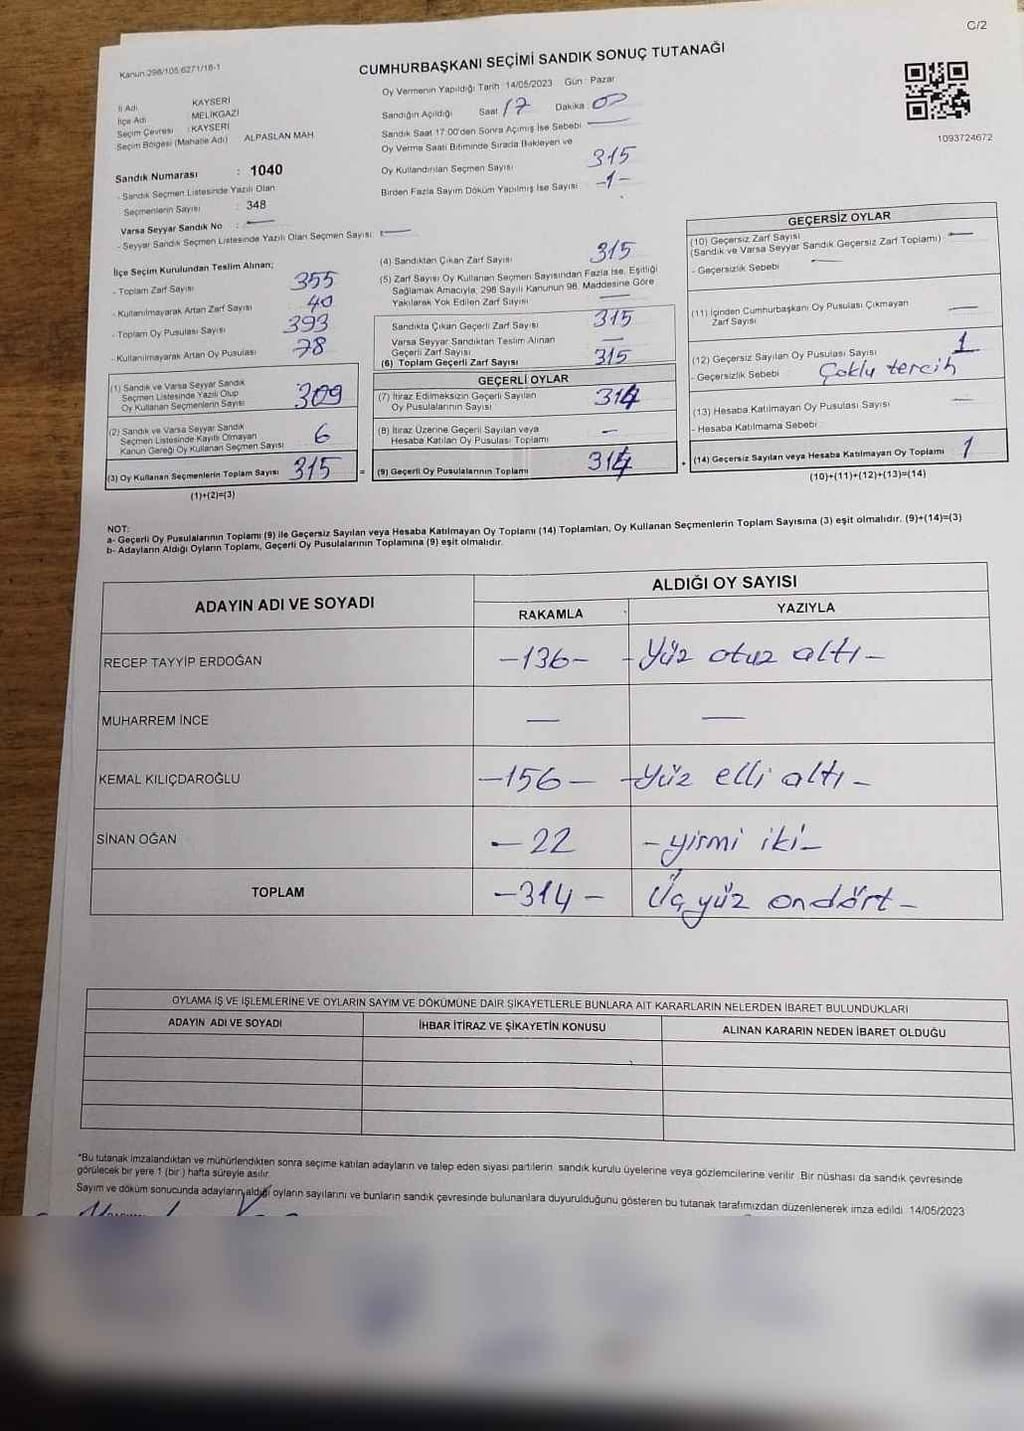 C/2
Kanun:298/105 6271/18-1
CUMHURBAŞKANI SEÇİMİ SANDIK SONUÇ TUTANAĞI
İl Adı KAYSERİ
İlçe Adı MELİKGAZİ
Seçim Çevresi : KAYSERİ
Seçim Bölgesi (Mahalle Adı) ALPASLAN MAH.
Sandık Numarası : 1040
- Sandık Seçmen Listesinde Yazılı Olan
Seçmenlerin Sayısı : 348
Varsa Seyyar Sandık No : —
- Seyyar Sandık Seçmen Listesinde Yazılı Olan Seçmen Sayısı: —
Oy Vermenin Yapıldığı Tarih :14/05/2023 Gün : Pazar
Sandığın Açıldığı Saat 17 Dakika : 00
Sandık Saat 17.00'den Sonra Açılmış İse Sebebi —
Oy Verme Saati Bitiminde Sırada Bekleyen ve
Oy Kullandırılan Seçmen Sayısı 315
Birden Fazla Sayım Döküm Yapılmış İse Sayısı -1-
1093724672
İlçe Seçim Kurulundan Teslim Alınan;
- Toplam Zarf Sayısı 355
- Kullanılmayarak Artan Zarf Sayısı 40
- Toplam Oy Pusulası Sayısı 393
- Kullanılmayarak Artan Oy Pusulası 78
(1) Sandık ve Varsa Seyyar Sandık
Seçmen Listesinde Yazılı Olup
Oy Kullanan Seçmenlerin Sayısı 309
(2) Sandık ve Varsa Seyyar Sandık
Seçmen Listesinde Kayıtlı Olmayan
Kanun Gereği Oy Kullanan Seçmen Sayısı 6
(3) Oy Kullanan Seçmenlerin Toplam Sayısı 315
(1)+(2)=(3)
(4) Sandıktan Çıkan Zarf Sayısı 315
(5) Zarf Sayısı Oy Kullanan Seçmen Sayısından Fazla İse, Eşitliği
Sağlamak Amacıyla, 298 Sayılı Kanunun 98. Maddesine Göre
Yakılarak Yok Edilen Zarf Sayısı —
Sandıkta Çıkan Geçerli Zarf Sayısı 315
Varsa Seyyar Sandıktan Teslim Alınan
Geçerli Zarf Sayısı —
(6) Toplam Geçerli Zarf Sayısı 315
GEÇERLİ OYLAR
(7) İtiraz Edilmeksizin Geçerli Sayılan
Oy Pusulalarının Sayısı 314
(8) İtiraz Üzerine Geçerli Sayılan veya
Hesaba Katılan Oy Pusulası Toplamı —
= (9) Geçerli Oy Pusulalarının Toplamı 314
GEÇERSİZ OYLAR
(10) Geçersiz Zarf Sayısı
(Sandık ve Varsa Seyyar Sandık Geçersiz Zarf Toplamı) —
- Geçersizlik Sebebi —
(11) İçinden Cumhurbaşkanı Oy Pusulası Çıkmayan
Zarf Sayısı —
(12) Geçersiz Sayılan Oy Pusulası Sayısı 1
- Geçersizlik Sebebi Çoklu tercih
(13) Hesaba Katılmayan Oy Pusulası Sayısı —
- Hesaba Katılmama Sebebi
+ (14) Geçersiz Sayılan veya Hesaba Katılmayan Oy Toplamı 1
(10)+(11)+(12)+(13)=(14)
NOT:
a- Geçerli Oy Pusulalarının Toplamı (9) ile Geçersiz Sayılan veya Hesaba Katılmayan Oy Toplamı (14) Toplamları, Oy Kullanan Seçmenlerin Toplam Sayısına (3) eşit olmalıdır. (9)+(14)=(3)
b- Adayların Aldığı Oyların Toplamı, Geçerli Oy Pusulalarının Toplamına (9) eşit olmalıdır.
ADAYIN ADI VE SOYADI
ALDIĞI OY SAYISI
RAKAMLA YAZIYLA
RECEP TAYYİP ERDOĞAN -136- -Yüz otuz altı-
MUHARREM İNCE — —
KEMAL KILIÇDAROĞLU -156- -Yüz elli altı-
SİNAN OĞAN -22 -yirmi iki-
TOPLAM -314- Üç yüz ondört-
OYLAMA İŞ VE İŞLEMLERİNE VE OYLARIN SAYIM VE DÖKÜMÜNE DAİR ŞİKAYETLERLE BUNLARA AİT KARARLARIN NELERDEN İBARET BULUNDUKLARI
ADAYIN ADI VE SOYADI İHBAR İTİRAZ VE ŞİKAYETİN KONUSU ALINAN KARARIN NEDEN İBARET OLDUĞU
*Bu tutanak imzalandıktan ve mühürlendikten sonra seçime katılan adayların ve talep eden siyasi partilerin sandık kurulu üyelerine veya gözlemcilerine verilir. Bir nüshası da sandık çevresinde
görülecek bir yere 1 (bir) hafta süreyle asılır.
Sayım ve döküm sonucunda adayların aldığı oyların sayılarını ve bunların sandık çevresinde bulunanlara duyurulduğunu gösteren bu tutanak tarafımızdan düzenlenerek imza edildi. 14/05/2023